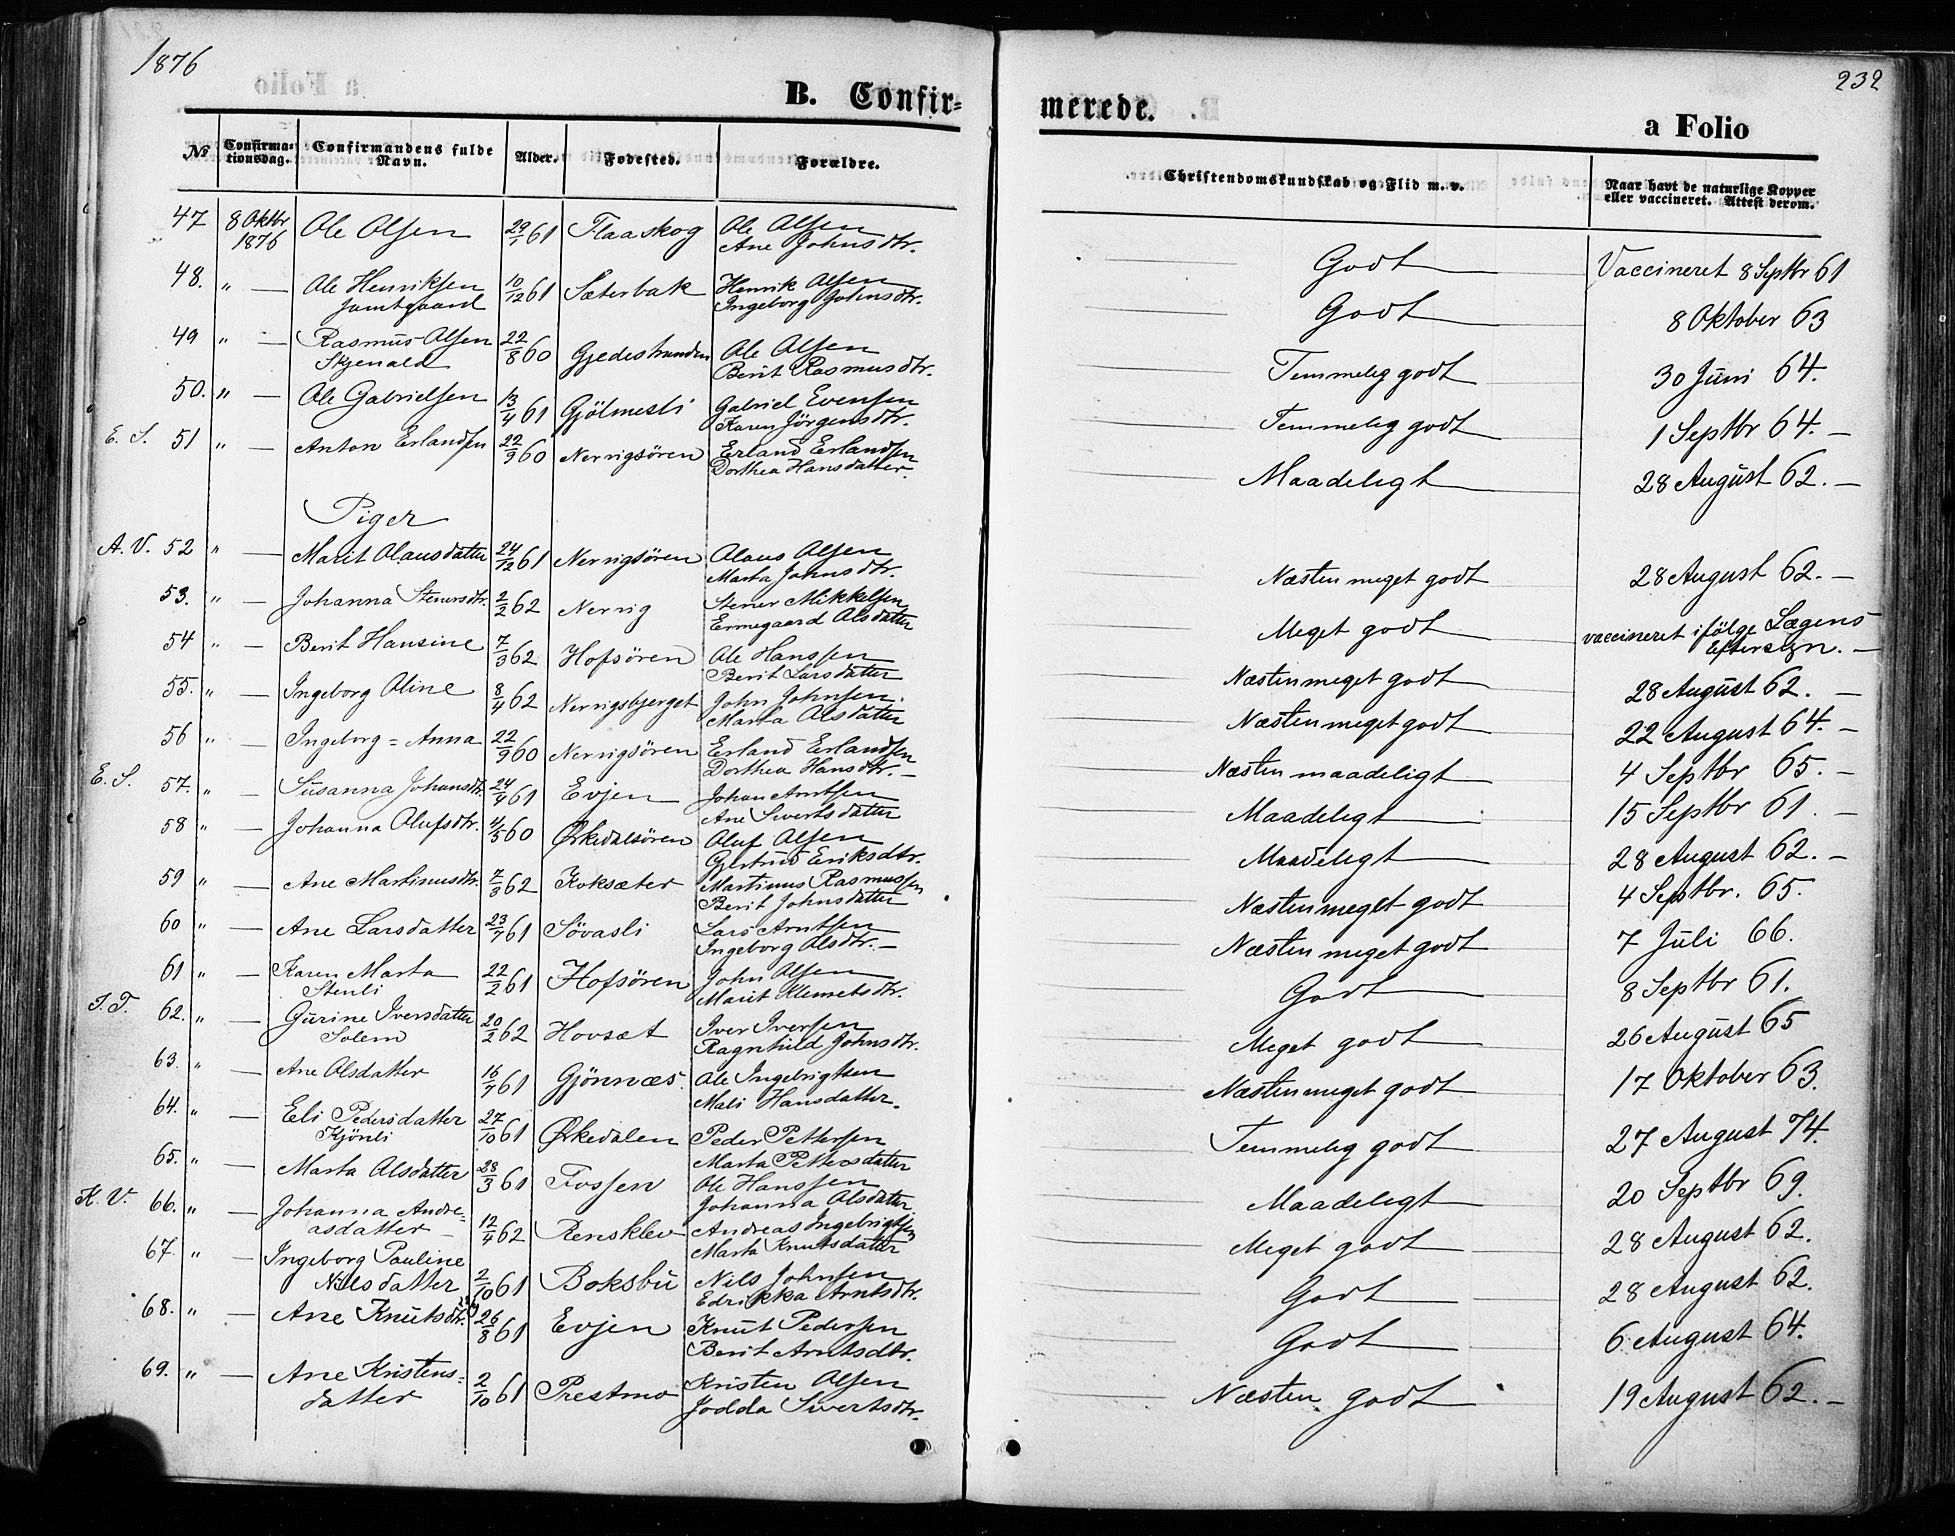 1876
232
B. Confirmerede.
a Folio
№ Confirmationsdag. Confirmandens fulde Navn. Alder. Fødested. Forældre. Christendomskundskab og Flid m. v. Naar havt de naturlige Kopper eller vaccineret. Attest derom.
47 8 Oktbr 1876 Ole Olsen 29/1 61 Flaaskog Ole Olsen Ane Johnsdtr. Godt Vaccineret 8 Septbr 61
48. " — Ole Henriksen Jamtgaard 10/12 61 Sæterbak Henrik Olsen Ingeborg Johnsdtr. Godt 8 Oktober 63
49 " — Rasmus Olsen Skjenald 22/8 60 Gjedestranden Ole Olsen Berit Rasmusdtr. Temmelig godt 30 Juni 64.
50. " — Ole Gabrielsen 13/4 61 Gjölmesli Gabriel Evensen Karen Jörgensdtr. Temmelig godt 1 Septbr 64. —
E. S. 51 " — Anton Erlandsen 22/9 60 Nerrigsören Erland Erlandsen Dorthea Hansdatter. Maadeligt 28 August 62. —
Piger
A. V. 52 " — Marit Olausdatter 24/12 61 Nerrigsören Olaus Olsen Marta Johnsdtr. Næsten meget godt 28 August 62. —
53. " — Johanna Stenersdtr. 2/2 62 Nerrig Stener Mikkelsen Ermegaard Olsdatter Meget godt vaccineret ifölge Lægens Eftersyn. —
54 " — Berit Hansine 7/3 62 Hofsören Ole Hanssen Berit Larsdatter Næsten meget godt 28 August 62. —
55. " — Ingeborg Oline 8/4 62 Nerrigsbjerget John Johnsen. Marta Olsdatter Næsten meget godt 22 August 64. —
56 " — Ingeborg = Anna 22/9 60 Nerrigsören Erland Erlandsen Dorthea Hansdtr. — Næsten maadeligt 4 Septbr 65. —
E. S. 57. " — Susanna Johansdtr. 24/4 61 Evjen Johan Arntsen Ane Sivertsdatter Maadeligt 15 Septbr 61. —
58 " — Johanna Olufsdtr. 4/5 60 Ørkedalsören Oluf Olsen Gjertrud Eriksdtr. Maadeligt 28 August 62. —
59 " — Ane Martinusdtr. 7/3 62 Koksæter Martinus Rasmussen Berit Johnsdatter Næsten meget godt 4 Septbr. 65.
60 " — Ane Larsdatter 23/7 61 Sövasli Lars Arntsen Ingeborg Olsdtr. — Næsten meget godt 7 Juli 66.
61 " — Karen Marta Stenli 22/2 61 Hofsören John Olsen Marit Klemetsdtr. Godt 8 Septbr 61.
I. T. 62. " — Gurine Iversdatter Solem 20/2 62 Hovsæt Iver Iversen Ragnhild Johnsdtr. Meget godt 26 August 65
63. " — Ane Olsdatter 16/7 61 Gjönnæs. Ole Ingebrigtsen Mali Hansdatter. Næsten meget godt 17 Oktober 63.
64. " — Eli Pedersdatter Kjönli 27/10 61 Ørkedalen Peder Pettersen Marta Pettersdatter Temmelig godt 27 August 74.
65. " — Marta Olsdatter 28/3 61 Fossen Ole Hanssen Johanna Olsdatter. Maadeligt 20 Septbr 69.
K. V. 66. " — Johanna Andreasdatter 12/4 62 Rensklev Andreas Ingebrigtsen Marta Knutsdatter Meget godt 28 August 62.
67. " — Ingeborg Pauline Nilsdatter 2/10 61 Boksbu Nils Johnsen Edrikka Arntsdtr. Godt 28 August 62.
68. " — Ane Knutsdtr. 26/8 61 Evjen Knut Pedersen Berit Arntsdtr. Godt 6 August 64.
69. " — Ane Kristensdatter 2/10 61 Prestmo Kristen Olsen Jodda Sivertsdtr. Næsten godt 19 August 62. —